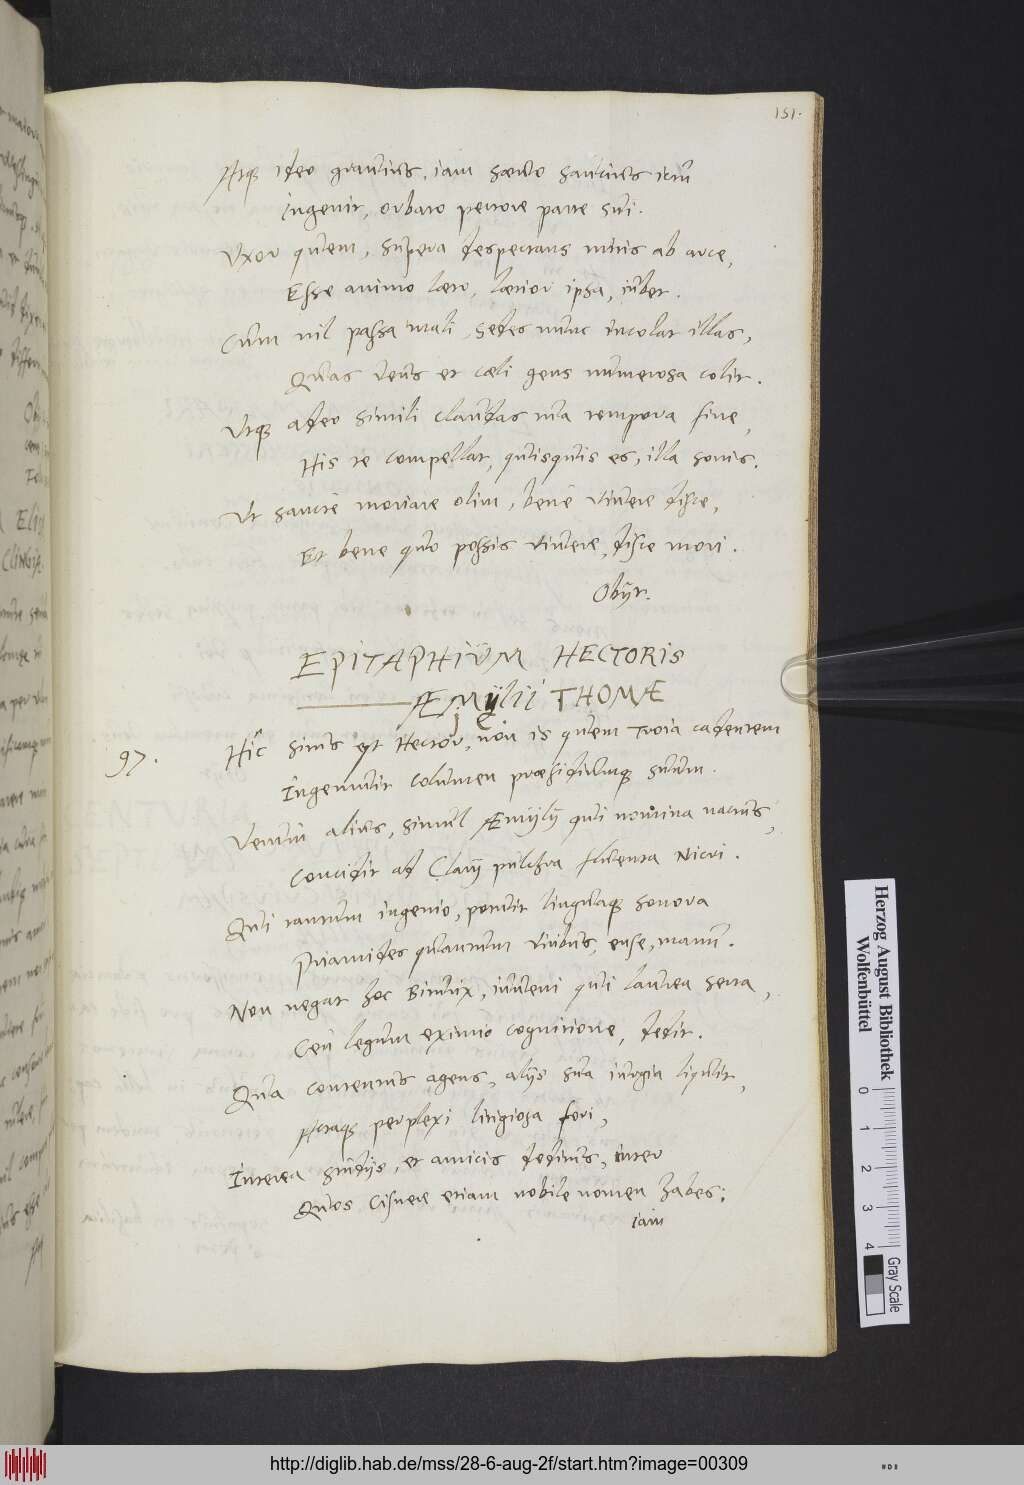 151.
Atque ideo gravius, iam sævo saucius ictu
Ingemit, orbato pectore patre sui.
Uxor quem, supera despectans mitis ab arce,
Esse animo læto, lætior ipsa, iubet.
Cum nil passa mali, sedes nunc incolat illas,
Quas deus et cæli gens numerosa colit.
Utque adeo simili claudas tua tempora fine,
His te compellat, quisquis es, illa sonis.
Ut sancte moriare olim, bene vivere disce,
Et bene quo possis vivere, disce mori.
Obijt.
EPITAPHIUM HECTORIS
ÆMYLII THOMÆ
97.
Hic situs est Hector, non is quem Troia cadentem
Ingemuit columen præsidiumque suum.
Verum alius, simul Æmylij qui nomina nactus,
Concidit ad Clarij pulchra fluenta Nicri.
Qui tantum ingenio, potuit linguaque sonora
Priamides quantum viribus, ense, manu.
Non negat hoc Biturix, iuveni qui laurea serta,
Ceu legum eximio cognitione, dedit.
Qua contentus agens, alijs sua iurgia liquit,
Actaque perplexi litigiosa fori,
Interea studijs, et amicis deditus, inter
Quos Cisnere etiam nobile nomen habes;
iam
Herzog August Bibliothek
Wolfenbüttel
0 1 2 3 4
Gray Scale
http://diglib.hab.de/mss/28-6-aug-2f/start.htm?image=00309